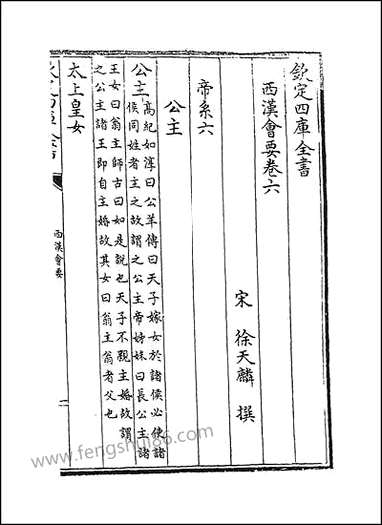 欽定四庫全書
西漢會要卷六
宋 徐天麟 撰
帝系六
公主
公主高紀如淳曰公羊傳曰天子嫁女於諸侯必使諸
侯同姓者主之故謂之公主帝姊妹曰長公主諸
王女曰翁主師古曰如是說也天子不親主婚故謂
之公主諸王即自主婚故其女曰翁主翁者父也
太上皇女
西漢會要
一
www.fengshui86.com